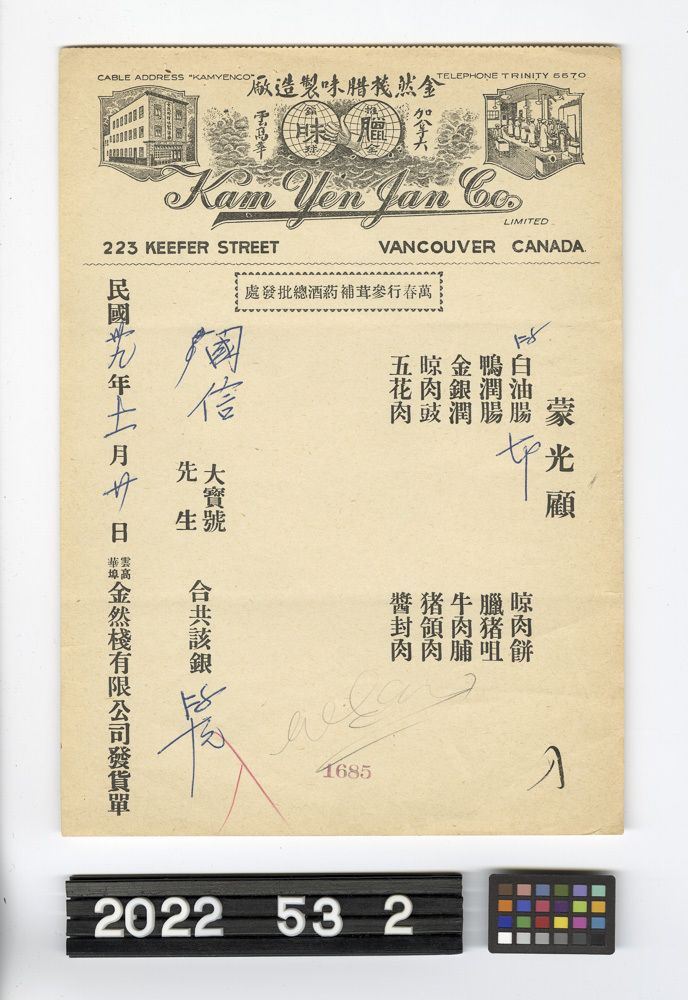 CABLE ADDRESS "KAMYENCO"
TELEPHONE TRINITY 6670
金然棧腊味製造廠
加拿大
雲高華
腊
味
Kam Yen Jan Co.
LIMITED
223 KEEFER STREET
VANCOUVER CANADA
萬春行參茸補葯酒總批發處
蒙光顧
白油腸
鴨潤腸
金銀潤
晾肉豉
五花肉
晾肉餅
臘猪咀
牛肉脯
猪領肉
醬封肉
國信
大寶號
先生
合共該銀
民國卅九年十一月廿日
雲高華埠金然棧有限公司發貨單
1685
2022 53 2